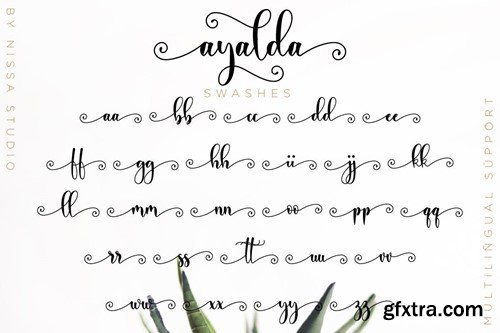 ayalda
SWASHES
aa bb cc dd ee
ff gg hh ii jj kk
ll mm nn oo pp qq
rr ss tt uu vv
ww xx yy zz
BY NISSA STUDIO
MULTILINGUAL SUPPORT
gfxtra.com